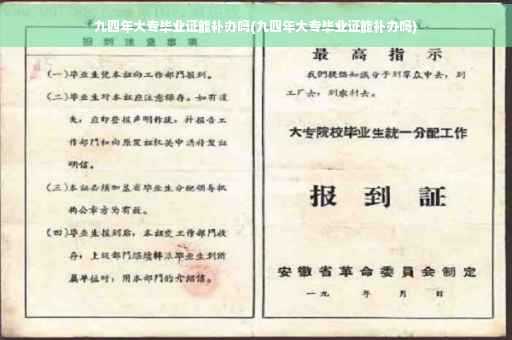 九四年大专毕业证能补办吗(九四年大专毕业证能补办吗)
报到注意事项
(一)毕业生凭本证向工作部门报到。
(二)毕业生对本证应注意保存。如有遗
失，应即登报声明作废，并报告工
作部门和向原发证机关申请补发证
明信。
(三)本证必须加盖省毕业生分配领导机
构公章方为有效。
(四)毕业生报到后，本证交工作部门收
存；上级部门继续转派毕业生到所
属单位时，用本部门的介绍信。
最高指示
我们提倡知识分子到群众中去，到
工厂去，到农村去。
大专院校毕业生统一分配工作
报到证
安徽省革命委员会制定
一九 年 月 日